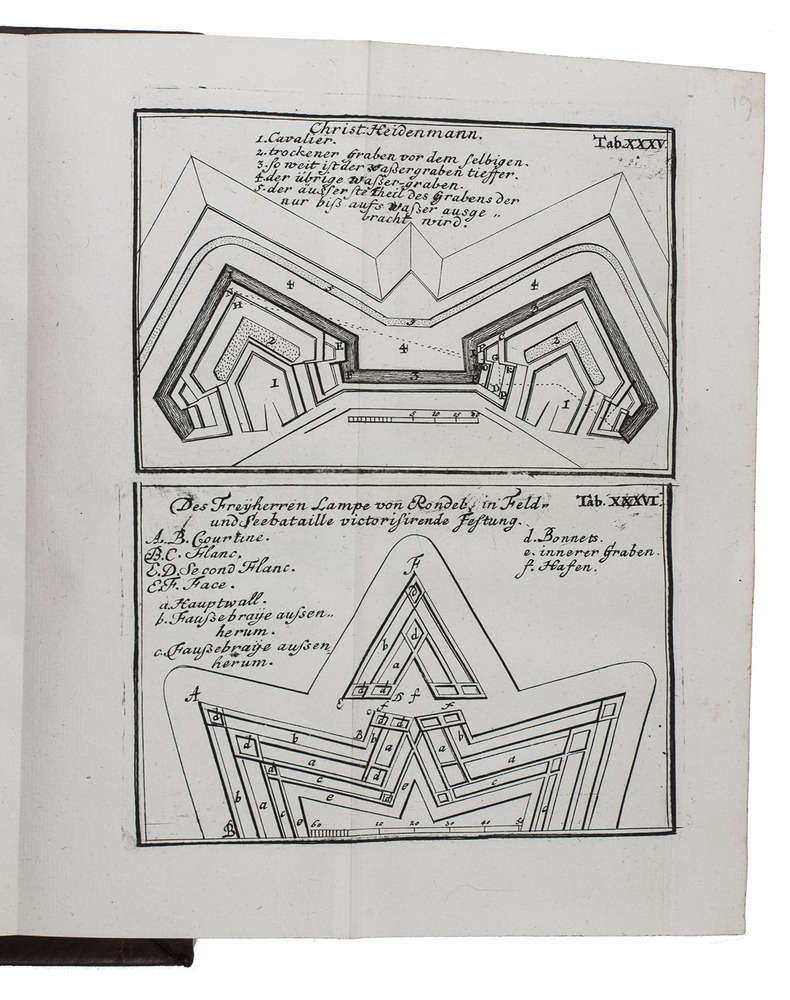 19
Christ: Heidenmann.
Tab. XXXV.
1. Cavalier.
2. trockener Graben vor dem selbigen.
3. so weit ist der Waßergraben tieffer.
4. der übrige Waßer-graben.
5. der äußerste theil des Grabens der
nur biß aufs Waßer ausge„
bracht wird.
4 5 4
H
3
2 E 4 5 E 2
1 F 3 D D 1
5 10 15 20
Des Freÿherren Lampe von Rondeb, in Feld„
und Seebataille victorisirende Festung.
Tab. XXXVI.
A. B. Courtine.
B. C. Flanc.
E. D. Second Flanc.
E. F. Face.
a. Hauptwall.
b. Faußebraÿe aussen„
herum.
c. Faußebraÿe aussen
herum.
d. Bonnets.
e. innerer Graben.
f. Hafen.
F
d
b d
a
A d d D f
d C f d d f
b B b a a b
d a d a
d c c
e d e
b a c e a
B 60 10 20 30 40 50